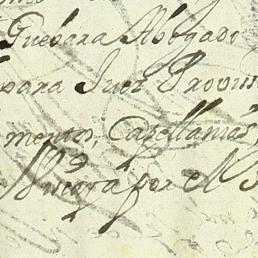 Guebara Abogado
para Juez Provis
mentos, Capellanias
por el S